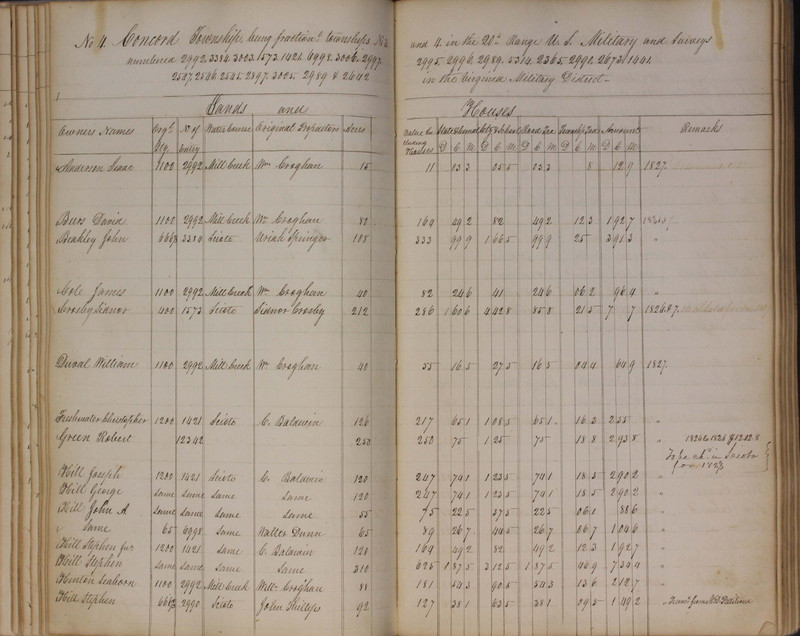 No 4. Concord Township, being fraction
numbered 2992. 3314. 3003. 1573. 1421. 6998. 3006. 2997.
2537. 2566. 2545. 2897. 3025. 2989 & 2642
and 4. in the 20th Range U. S. Military and Surveys
2995. 2996. 2989. 2365. 2990. 2673. 1401.
in the Virginia Military District
Lands and Houses
Owners Names Orgl Qty No of entry Water Course Original Proprietors Acres Value Including Houses Road Tax Township Tax Amount Remarks
D C M D C M D C M D C M
Anderson Isaac 1100 2992 Mill Creek Wm Croghan 15 11 03 3 05 5 03 3 8 12 9 1827.
Beers David 1100 2992 Mill Creek Wm Croghan 82 164 49 2 82 49 2 12 3 1 92 7
Beakley John 666⅔ 3314 Scioto Uriah Springer 108 333 99 9 1 66 5 99 9 25 3 91 3 "
Cole James 1100 2992 Mill Creek Wm Croghan 40 82 24 6 41 24 6 06 2 96 4 "
Crosby Sidnor 400 1573 Scioto Sidnor Crosby 212 286 1 60 6 4 42 8 85 8 21 5 7 7 1826 & 7.
Duval William 1100 2992 Mill Creek Wm Croghan 40 55 16 5 27 5 16 5 04 4 64 9 1827.
Freshwater Christopher 1200 1421 Scioto C. Baldwin 126 217 65 1 1 08 5 65 1 16 3 2 55 "
Green Robert 12342 250 250 75 1 25 75 18 8 2 93 8 "
Hill Joseph 1200 1421 Scioto C. Baldwin 120 247 74 1 1 23 5 74 1 18 5 2 90 2 "
Hill George Same Same Same Same 120 247 74 1 1 23 5 74 1 18 5 2 90 2 "
Hill John A Same Same Same Same 55 75 22 5 37 5 22 5 06 1 88 6 "
" Same 65 6998 Same Walter Dunn 65 89 26 7 44 5 26 7 06 7 1 04 6 "
Hill Stephen Junr 1200 1421 Same C. Baldwin 120 164 49 2 82 49 2 12 3 1 92 7 "
Hill Stephen Same Same Same Same 310 625 1 87 5 3 12 5 1 87 5 46 9 7 34 4 "
Hinton Seaborn 1100 2992 Mill Creek Willm Croghan 88 181 54 3 90 5 54 3 13 6 2 12 7 "
Hill Stephen 666⅔ 2990 Scioto John Phillips 92 127 38 1 63 5 38 1 09 5 1 49 2 "